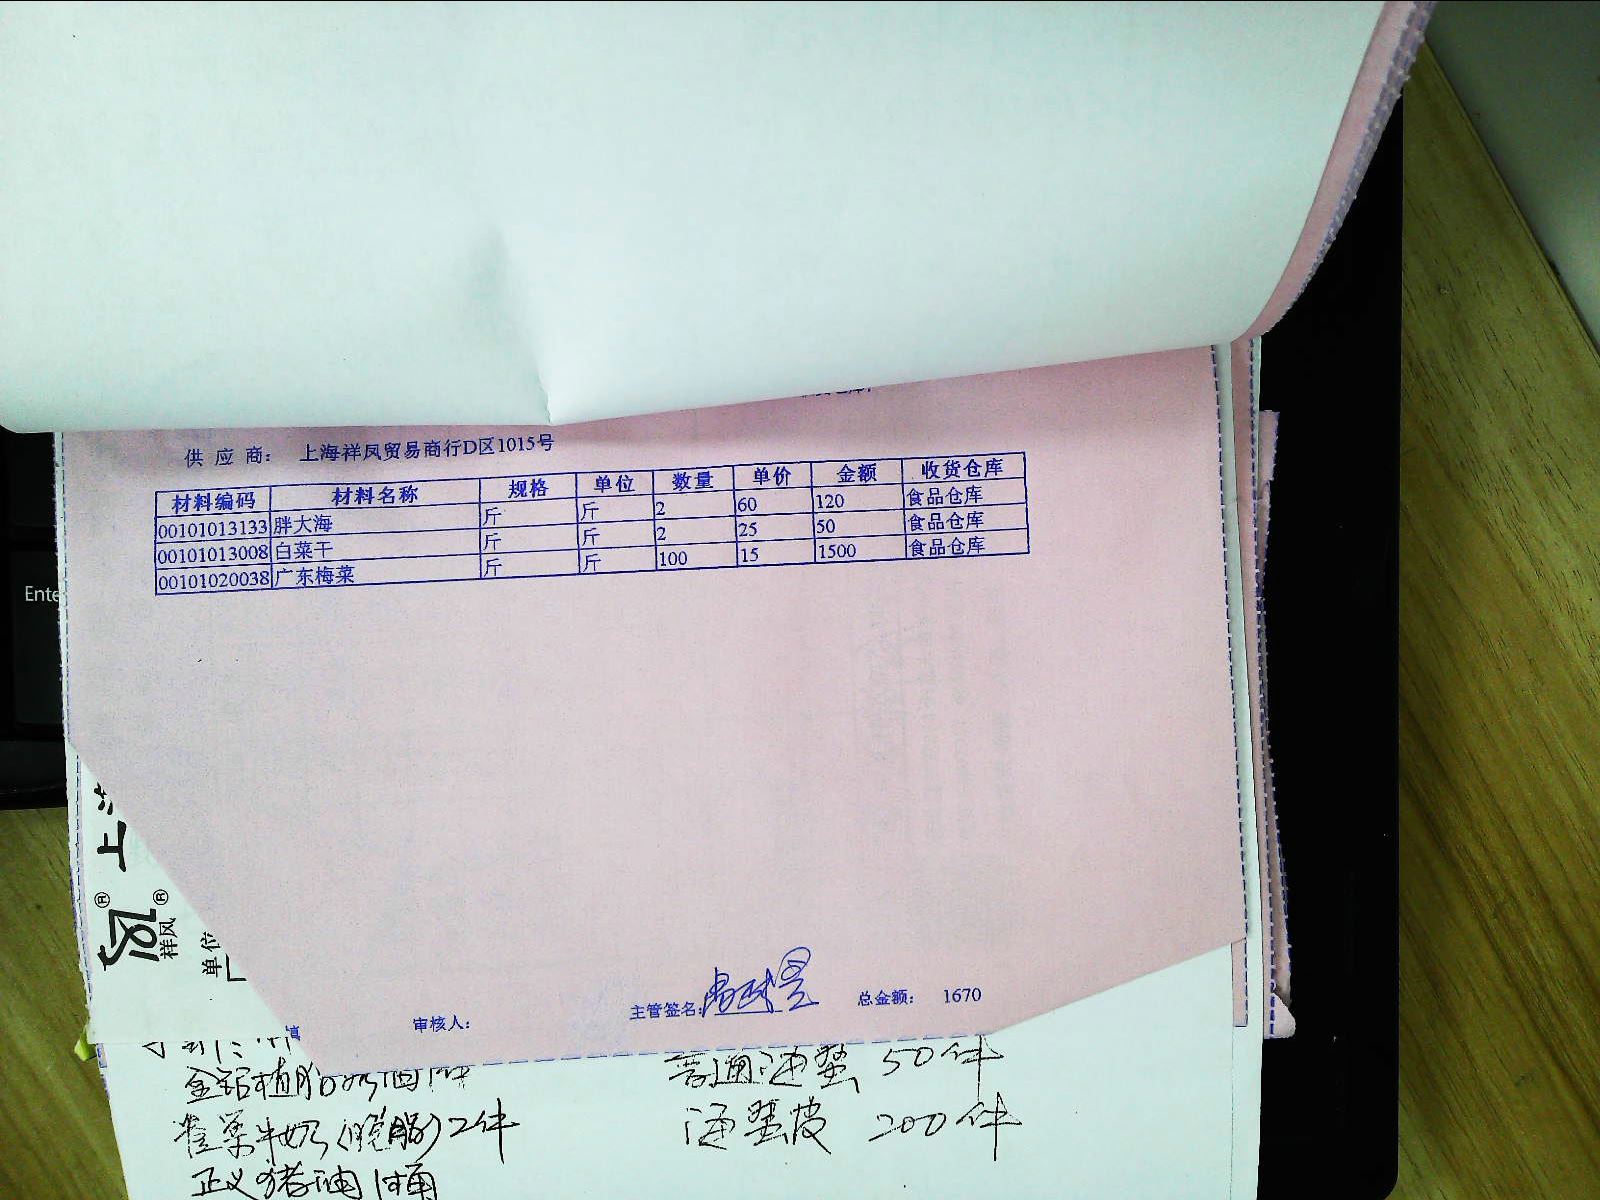 供 应 商: 上海祥凤贸易商行D区1015号
材料编码 材料名称 规格 单位 数量 单价 金额 收货仓库
00101013133 胖大海 斤 斤 2 60 120 食品仓库
00101013008 白菜干 斤 斤 2 25 50 食品仓库
00101020038 广东梅菜 斤 斤 100 15 1500 食品仓库
Ente
上
® ®
祥凤
单位
审核人: 主管签名: 总金额: 1670
普通海蜇 50件
牛奶(脱脂)2件 海蜇皮 200件
正义猪油 1桶